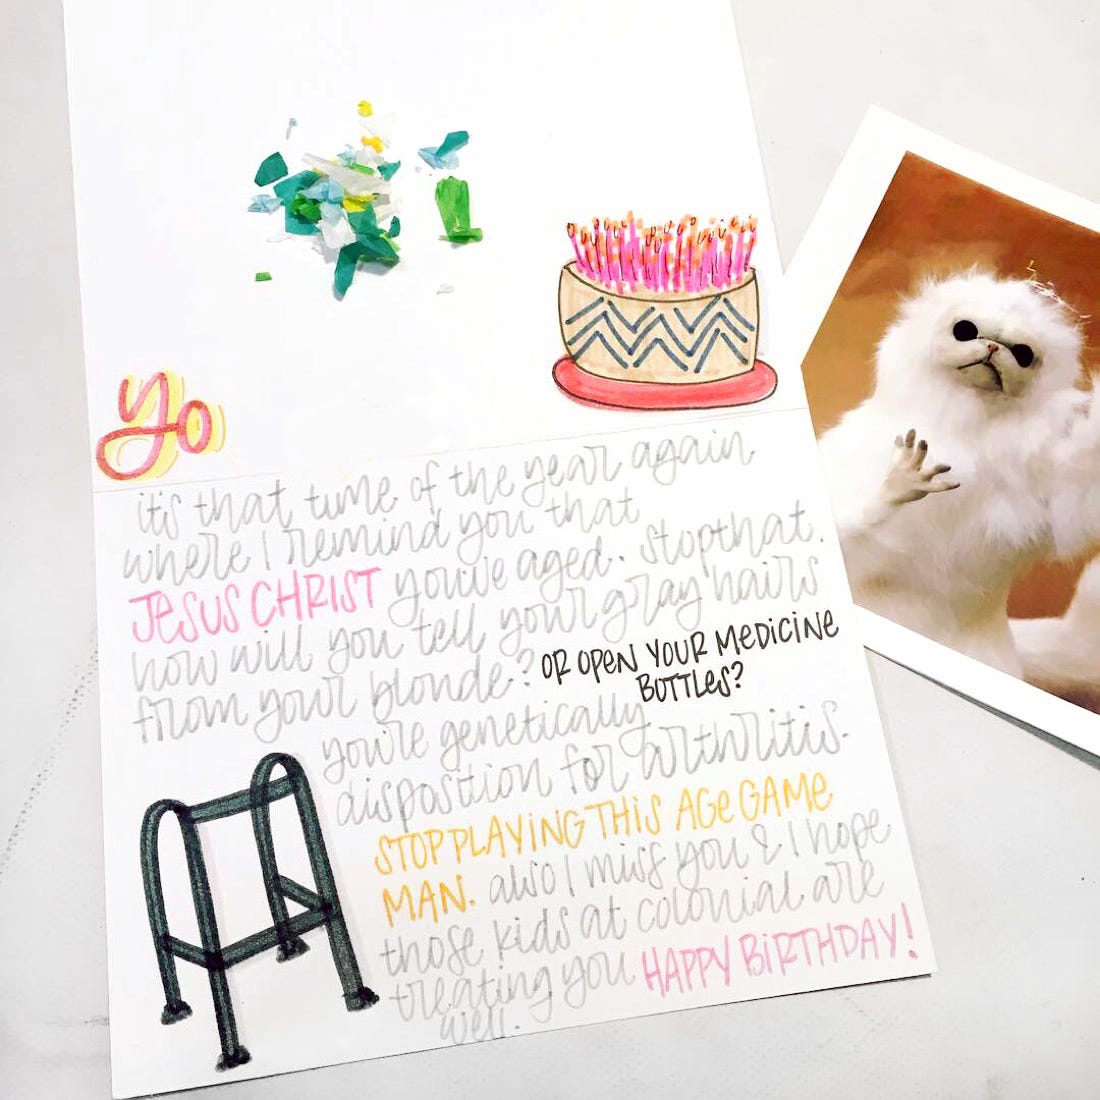 yo
it's that time of the year again
where I remind you that
JESUS CHRIST you've aged. stop that.
how will you tell your gray hairs
from your blonde? OR OPEN YOUR MEDICINE
BOTTLES?
you're genetically
disposition for arthritis.
STOP PLAYING THIS AGE GAME
MAN. also I miss you & I hope
those kids at colonial are
treating you HAPPY BIRTHDAY!
well.